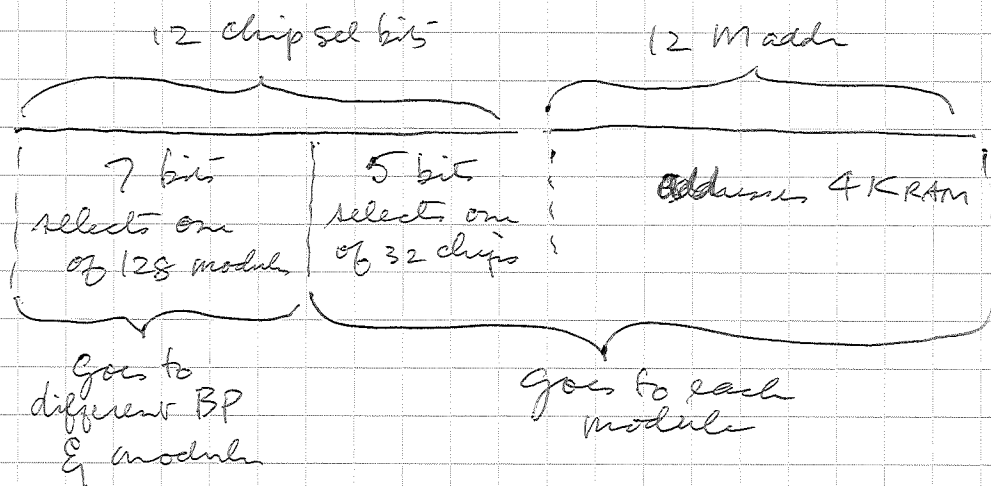 12 chip sel bits
12 M addr
7 bits
selects one
of 128 modules
5 bits
selects one
of 32 chips
addresses 4K RAM
goes to
different BP
& modules
goes to each
module